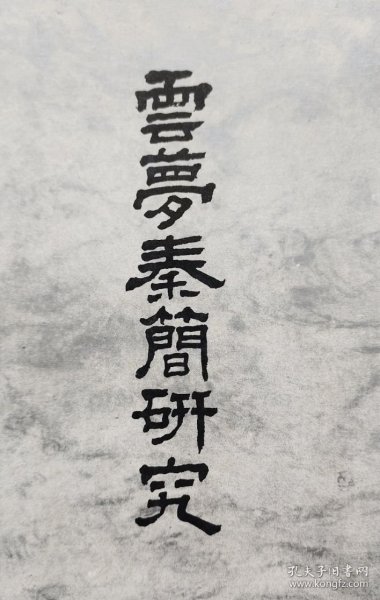 雲夢秦簡研究
孔夫子旧书网
www.kongfz.com